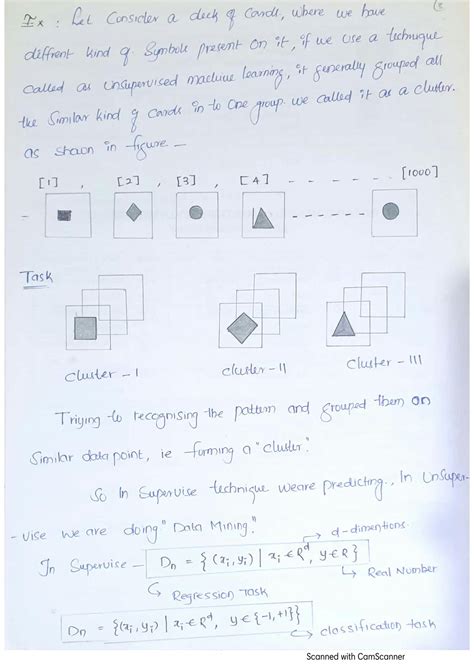 (3
Ex : Let Consider a deck of Cards, where we have
diffrent kind of Symbols present on it, if we use a technique
called as Unsupervised machine learning, it generally grouped all
the Similar kind of Cards in to One group. we called it as a cluster.
as shown in figure –
[1] , [2] , [3] , [4] - - - - - - [1000]
Task
Cluster – I Cluster – II Cluster – III
Triying to recognising the pattern and grouped them on
Similar data point, ie forming a "cluster".
So In Supervise technique weare predicting., In UnSuper-
- vise we are doing "Data Mining".
d-dimentions.
In Supervise – Dn = {(xi, yi) | xi ∈ R^d, y ∈ R}
Regression Task Real Number
Dn = {(xi, yi) | xi ∈ R^d, y ∈ {-1, +1}}
classification task
Scanned with CamScanner